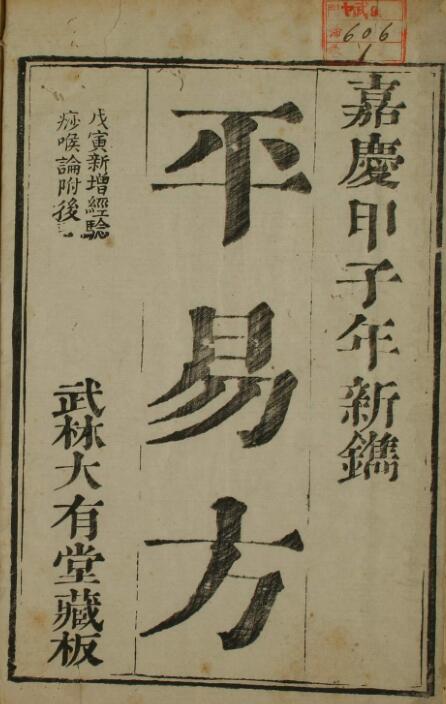 嘉慶甲子年新鐫
平易方
戊寅新增經驗
痧喉論附後
武林大有堂藏板
606
1